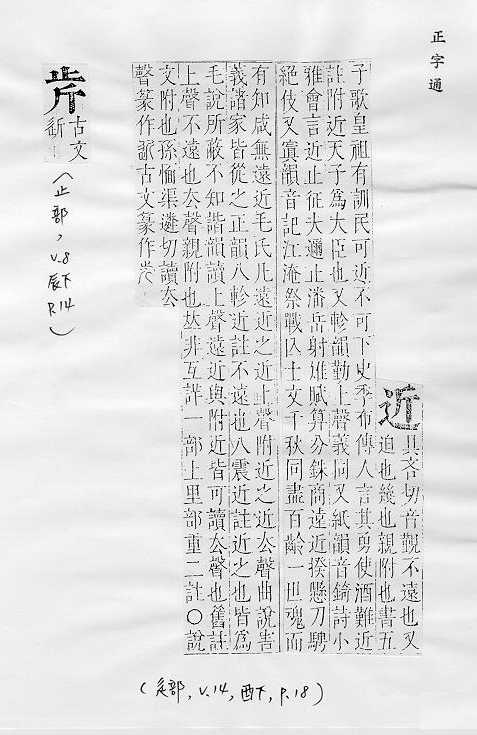 正字通
近
具吝切音覲不遠也又
迫也幾也親附也書五
子歌皇祖有訓民可近不可下史季布傳人言其勇使酒難近
註附近天子爲大臣也又軫韻勤上聲義同又紙韻音錡詩小
雅會言近止征夫邇止潘岳射雉賦筭分銖商遠近揆懸刀騁
絕伎又寘韻音記江淹祭戰亾士文千秋同盡百齡一世魂而
有知咸無遠近毛氏凡遠近之近上聲附近之近去聲曲說害
義諸家皆從之正韻八軫近註不遠也八震近註近之也皆爲
毛說所蔽不知諧韻讀上聲遠近與附近皆可讀去聲也舊註
上聲不遠也去聲親附也𠀤非互詳一部上里部重二註〇說
文附也孫愐渠遴切讀去
聲篆作古文篆作
古文
(止部, v.8 辰下 P.14)
(辵部, v.14, 酉下, P.18)